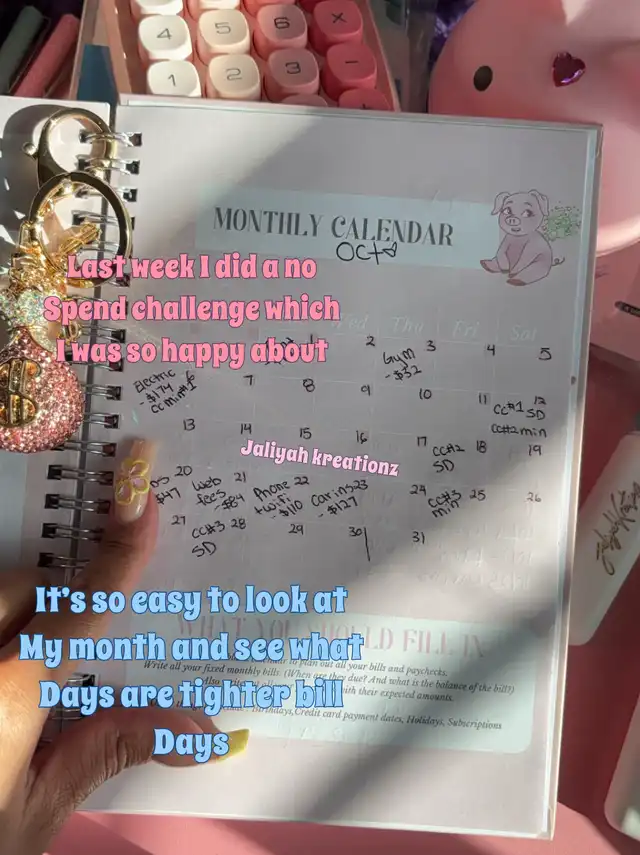 4 5 6 ×
1 2 3 −
+
MONTHLY CALENDAR
OCT
Last week I did a no
Spend challenge which
I was so happy about
Wed Thu Fri Sat
1 2 3 4 5
Gym
-$32
Electric 6 7 8 9 10 11 12
-$174
CC min#1
CC#1 SD
CC#2 min
13 14 15 16 17 18 19
CC#2
SD
Jaliyah kreationz
20 21 22 23 24 25 26
$47
Web
fees
-$84
Phone
+wifi
-$110
Car ins
-$127
CC#3
min
27 28 29 30 31
CC#3
SD
It's so easy to look at
My month and see what
Days are tighter bill
Days
WHAT YOU SHOULD FILL IN
to plan out all your bills and paychecks.
Write all your fixed monthly bills. (When are they due? And what is the balance of the bill?)
Also with their expected amounts.
Birthdays, Credit card payment dates, Holidays, Subscriptions